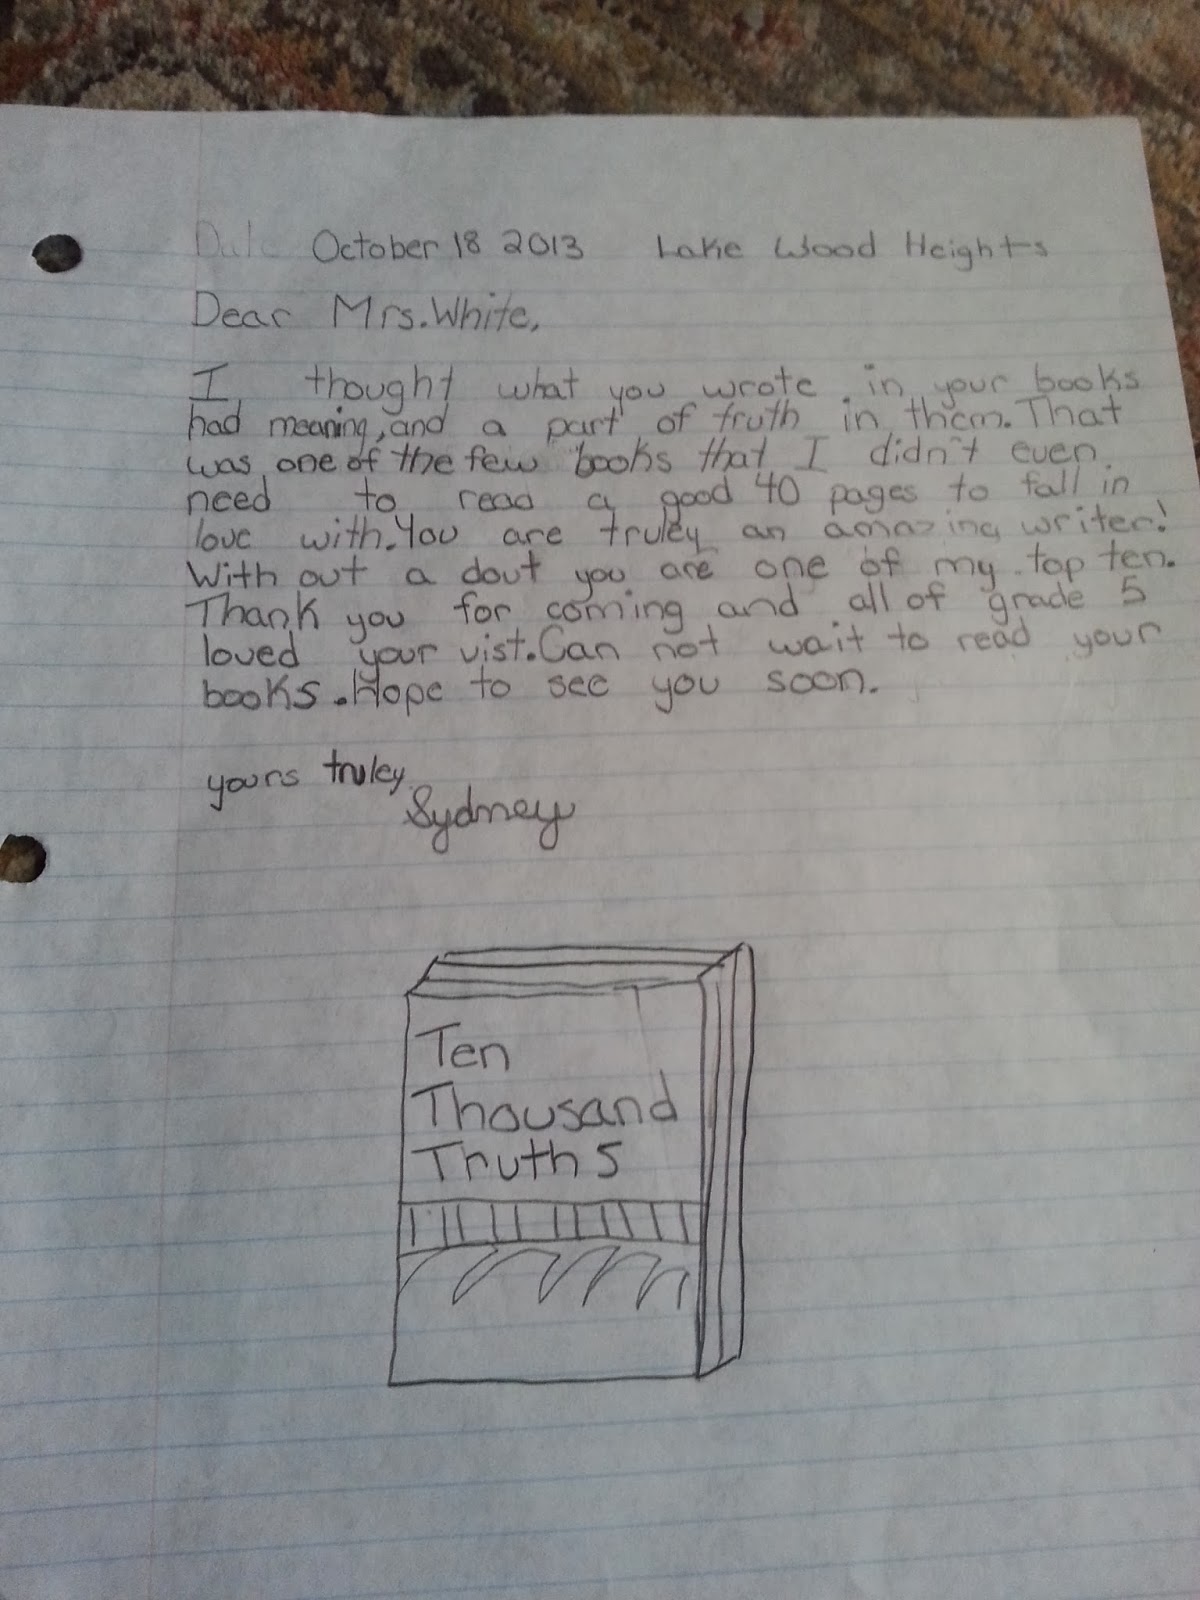 Date October 18 2013 Lake Wood Heights
Dear Mrs. White,
I thought what you wrote in your books
had meaning, and a part of truth in them. That
was one of the few books that I didn't even
need to read a good 40 pages to fall in
love with. You are truley an amazing writer!
With out a dout you are one of my top ten.
Thank you for coming and all of grade 5
loved your vist. Can not wait to read your
books. Hope to see you soon.
yours truley
Sydney
Ten
Thousand
Truths